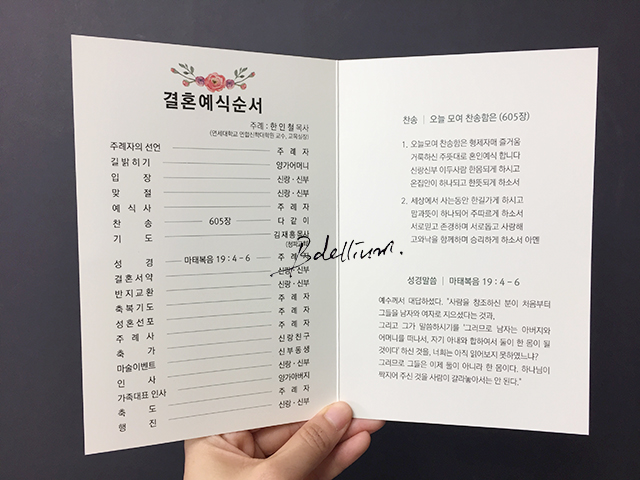 결혼예식순서
주례 : 한 인 철 목사
(연세대학교 연합신학대학원 교수, 교목실장)
주례자의 선언 주 례 자
길 밝 히 기 양가어머니
입 장 신랑·신부
맞 절 신랑·신부
예 식 사 주 례 자
찬 송 605장 다 같 이
기 도 김재흥목사
성 경 마태복음 19 : 4 – 6 주 례 자
결 혼 서 약 신랑·신부
반 지 교 환 신랑·신부
축 복 기 도 주 례 자
성 혼 선 포 주 례 자
주 례 사 주 례 자
축 가 신 랑 친 구
마술이벤트 신 부 동 생
인 사 신랑·신부
가족대표 인사 양가아버지
축 도 주 례 자
행 진 신랑·신부
Bdellium.
찬송 | 오늘 모여 찬송함은 (605장)
1. 오늘모여 찬송함은 형제자매 즐거움
거룩하신 주뜻대로 혼인예식 합니다
신랑신부 이두사람 한몸되게 하시고
온집안이 하나되고 한뜻되게 하소서
2. 세상에서 사는동안 한길가게 하시고
맘과뜻이 하나되어 주따르게 하소서
서로믿고 존경하며 서로돕고 사랑해
고와낙을 함께하며 승리하게 하소서 아멘
성경말씀 | 마태복음 19 : 4 – 6
예수께서 대답하셨다. "사람을 창조하신 분이 처음부터
그들을 남자와 여자로 지으셨다는 것과,
그리고 그가 말씀하시기를 '그러므로 남자는 아버지와
어머니를 떠나서, 자기 아내와 합하여서 둘이 한 몸이 될
것이다' 하신 것을, 너희는 아직 읽어보지 못하였느냐?
그러므로 그들은 이제 둘이 아니라 한 몸이다. 하나님이
짝지어 주신 것을 사람이 갈라놓아서는 안 된다."